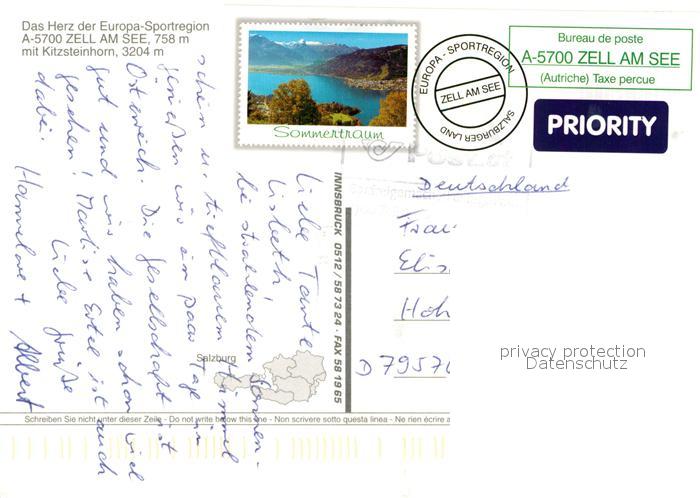 Das Herz der Europa-Sportregion
A-5700 ZELL AM SEE, 758 m
mit Kitzsteinhorn, 3204 m
Sommertraum
EUROPA - SPORTREGION
ZELL AM SEE
SALZBURGER LAND
Bureau de poste
A-5700 ZELL AM SEE
(Autriche) Taxe percue
PRIORITY
Liebe Tante
Lisbeth!
bei strahlendem Sonnen-
schein u. tiefblauem Himmel
genießen wir ein paar Tage in
Österreich. Die Gesellschaft ist
gut und wir haben schon viel
gesehen! Martise Ertel ist auch
dabei. Liebe Grüße
Hannelore + Albert
INNSBRUCK 0512/58 73 24 · FAX 58 19 65
Deutschland
Frau
Elis
Höh
D 79576
Salzburg
privacy protection
Datenschutz
Schreiben Sie nicht unter dieser Zeile - Do not write below this line - Non scrivere sotto questa linea - Ne rien écrire a